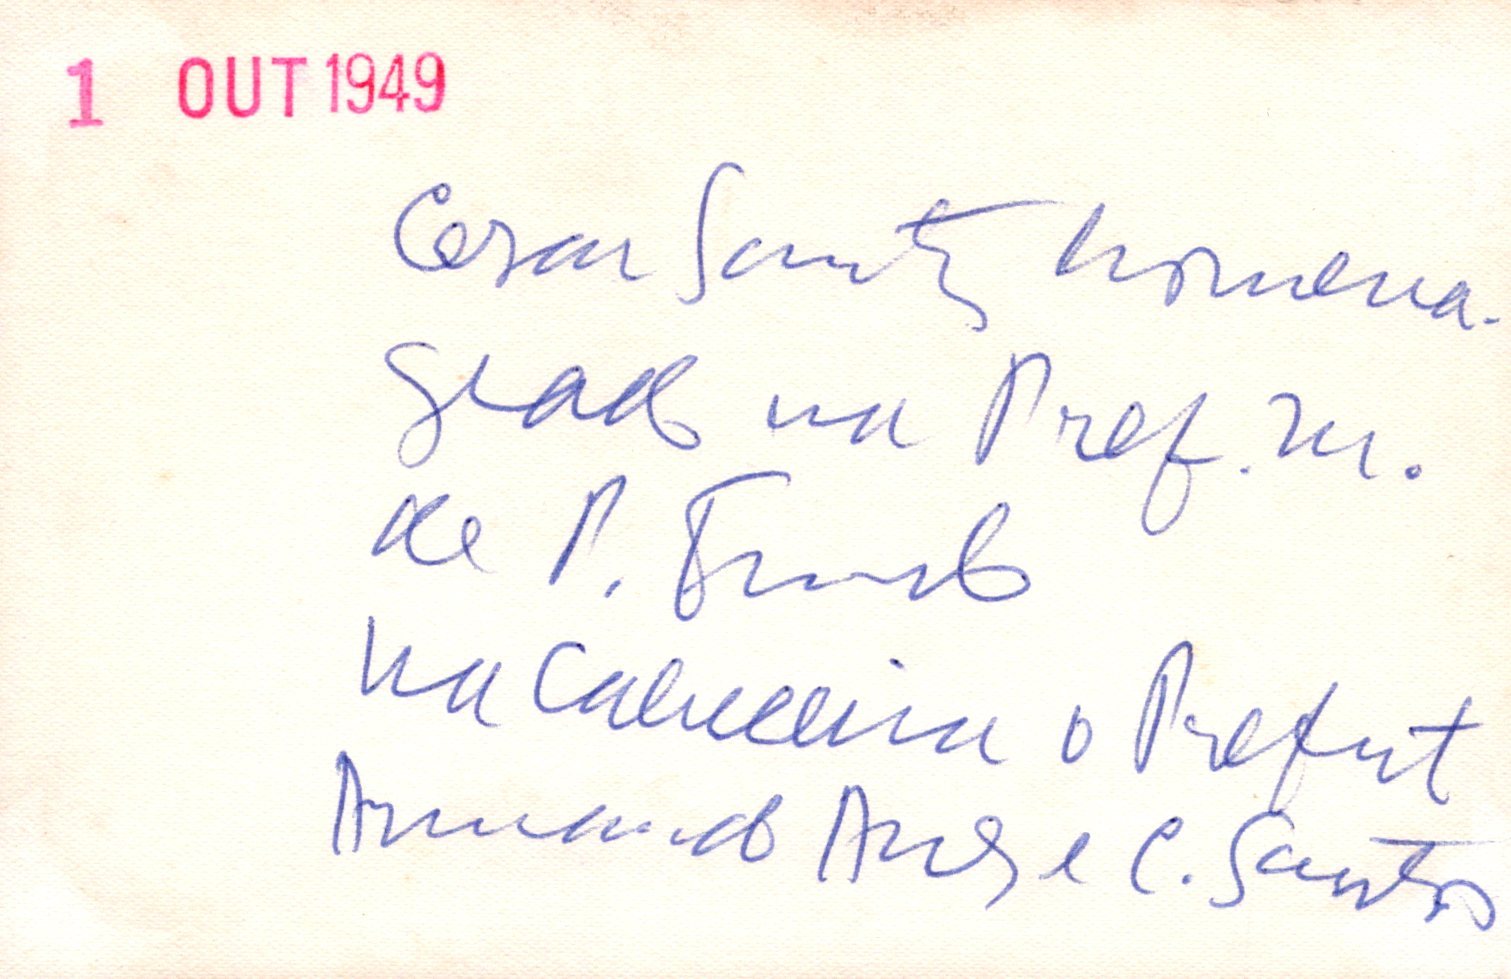 1 OUT 1949
Cesar Santos homena-
geado na Pref. M.
de P. Fundo
Na Cabeceira o Prefeit
Armando Annes e C. Santos